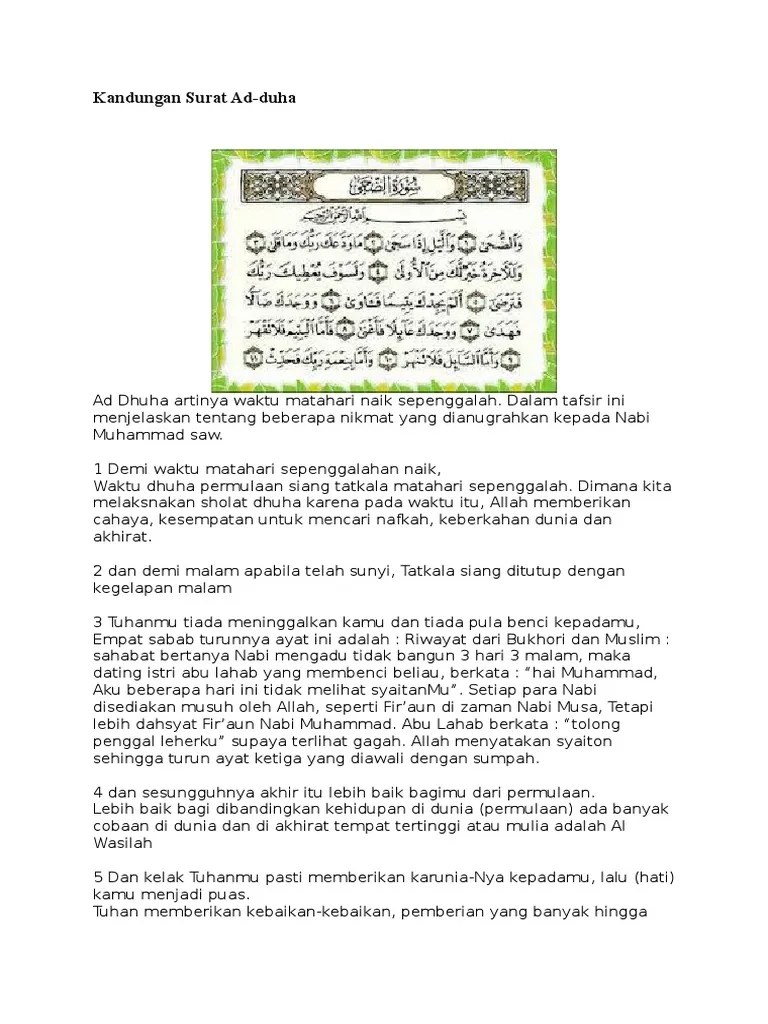 Kandungan Surat Ad-duha
سُورَةُ الضُّحَى
بِسْمِ اللَّهِ الرَّحْمَٰنِ الرَّحِيمِ
وَالضُّحَىٰ ١ وَاللَّيْلِ إِذَا سَجَىٰ ٢ مَا وَدَّعَكَ رَبُّكَ وَمَا قَلَىٰ ٣
وَلَلْآخِرَةُ خَيْرٌ لَّكَ مِنَ الْأُولَىٰ ٤ وَلَسَوْفَ يُعْطِيكَ رَبُّكَ
فَتَرْضَىٰ ٥ أَلَمْ يَجِدْكَ يَتِيمًا فَآوَىٰ ٦ وَوَجَدَكَ ضَالًّا
فَهَدَىٰ ٧ وَوَجَدَكَ عَائِلًا فَأَغْنَىٰ ٨ فَأَمَّا الْيَتِيمَ فَلَا تَقْهَرْ
٩ وَأَمَّا السَّائِلَ فَلَا تَنْهَرْ ١٠ وَأَمَّا بِنِعْمَةِ رَبِّكَ فَحَدِّثْ ١١
Ad Dhuha artinya waktu matahari naik sepenggalah. Dalam tafsir ini
menjelaskan tentang beberapa nikmat yang dianugrahkan kepada Nabi
Muhammad saw.
1 Demi waktu matahari sepenggalahan naik,
Waktu dhuha permulaan siang tatkala matahari sepenggalah. Dimana kita
melaksnakan sholat dhuha karena pada waktu itu, Allah memberikan
cahaya, kesempatan untuk mencari nafkah, keberkahan dunia dan
akhirat.
2 dan demi malam apabila telah sunyi, Tatkala siang ditutup dengan
kegelapan malam
3 Tuhanmu tiada meninggalkan kamu dan tiada pula benci kepadamu,
Empat sabab turunnya ayat ini adalah : Riwayat dari Bukhori dan Muslim :
sahabat bertanya Nabi mengadu tidak bangun 3 hari 3 malam, maka
dating istri abu lahab yang membenci beliau, berkata : “hai Muhammad,
Aku beberapa hari ini tidak melihat syaitanMu”. Setiap para Nabi
disediakan musuh oleh Allah, seperti Fir’aun di zaman Nabi Musa, Tetapi
lebih dahsyat Fir’aun Nabi Muhammad. Abu Lahab berkata : “tolong
penggal leherku” supaya terlihat gagah. Allah menyatakan syaiton
sehingga turun ayat ketiga yang diawali dengan sumpah.
4 dan sesungguhnya akhir itu lebih baik bagimu dari permulaan.
Lebih baik bagi dibandingkan kehidupan di dunia (permulaan) ada banyak
cobaan di dunia dan di akhirat tempat tertinggi atau mulia adalah Al
Wasilah
5 Dan kelak Tuhanmu pasti memberikan karunia-Nya kepadamu, lalu (hati)
kamu menjadi puas.
Tuhan memberikan kebaikan-kebaikan, pemberian yang banyak hingga